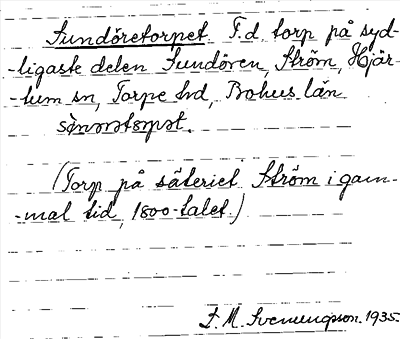 Sundöretorpet. F.d. torp på syd-
-ligaste delen Sundören, Ström, Hjär-
-tum sn, Torpe hd, Bohus län
(Torp på säteriet Ström i gam-
-mal tid, 1800-talet.)
F. M. Svenungson. 1935.